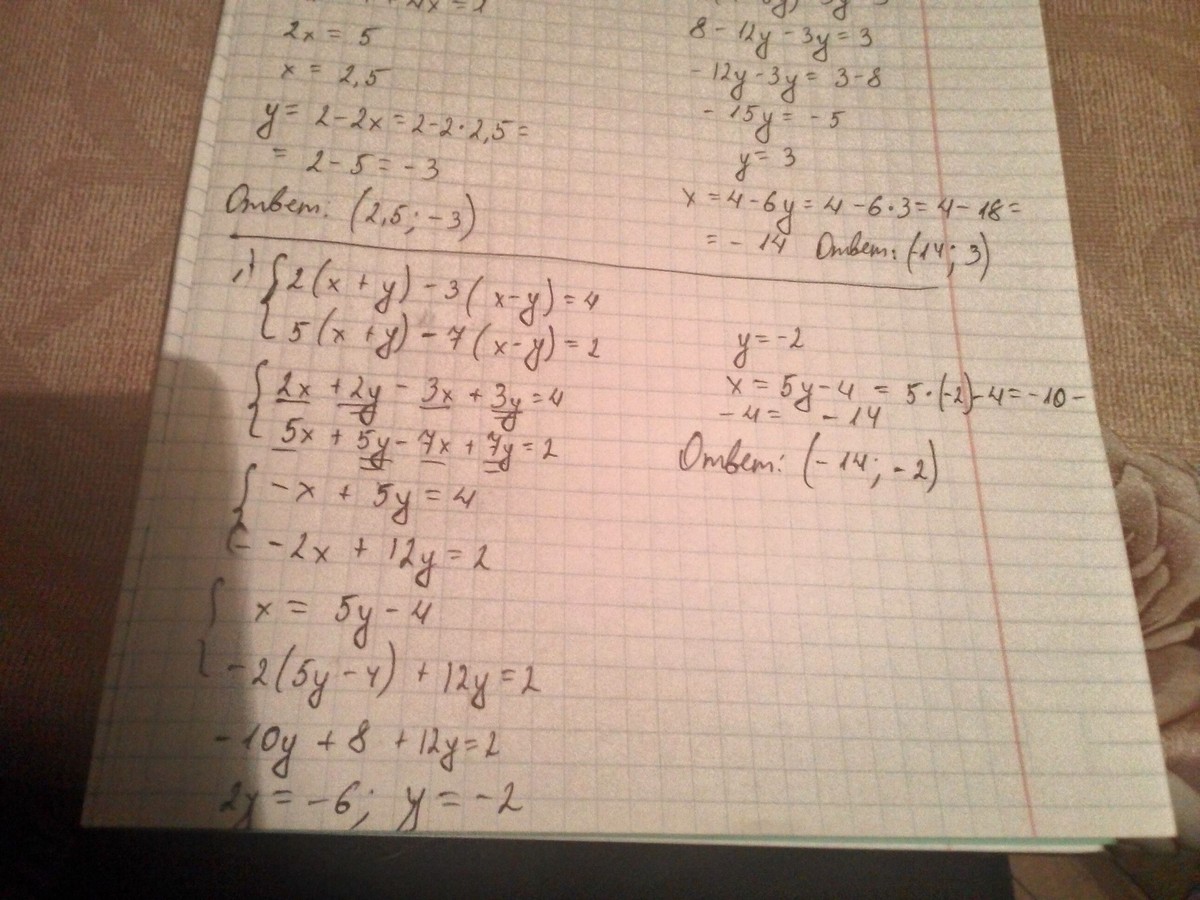 2x = 5
x = 2,5
y = 2-2x = 2-2·2,5 =
= 2-5 = -3
Ответ: (2,5; -3)
8 - 12y - 3y = 3
-12y-3y = 3-8
-15y = -5
y = 3
x = 4-6y = 4-6·3 = 4-18 =
= -14 Ответ: (-14; 3)
{ 2(x+y) - 3(x-y) = 4
5(x+y) - 7(x-y) = 2
{ 2x + 2y - 3x + 3y = 4
5x + 5y - 7x + 7y = 2
{ -x + 5y = 4
-2x + 12y = 2
{ x = 5y - 4
-2(5y-4) + 12y = 2
-10y + 8 + 12y = 2
2y = -6; y = -2
y = -2
x = 5y-4 = 5·(-2)-4 = -10-
-4 = -14
Ответ: (-14; -2)